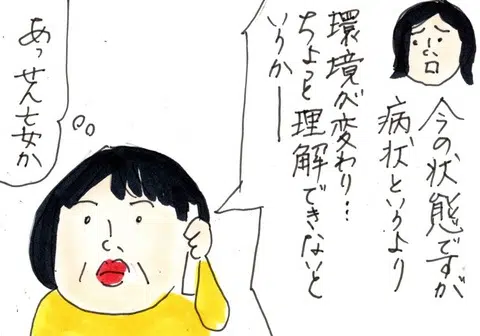 今の状態ですが
病状というより
環境が変わり…
ちょっと理解できないと
いうかー
あっせん妄か